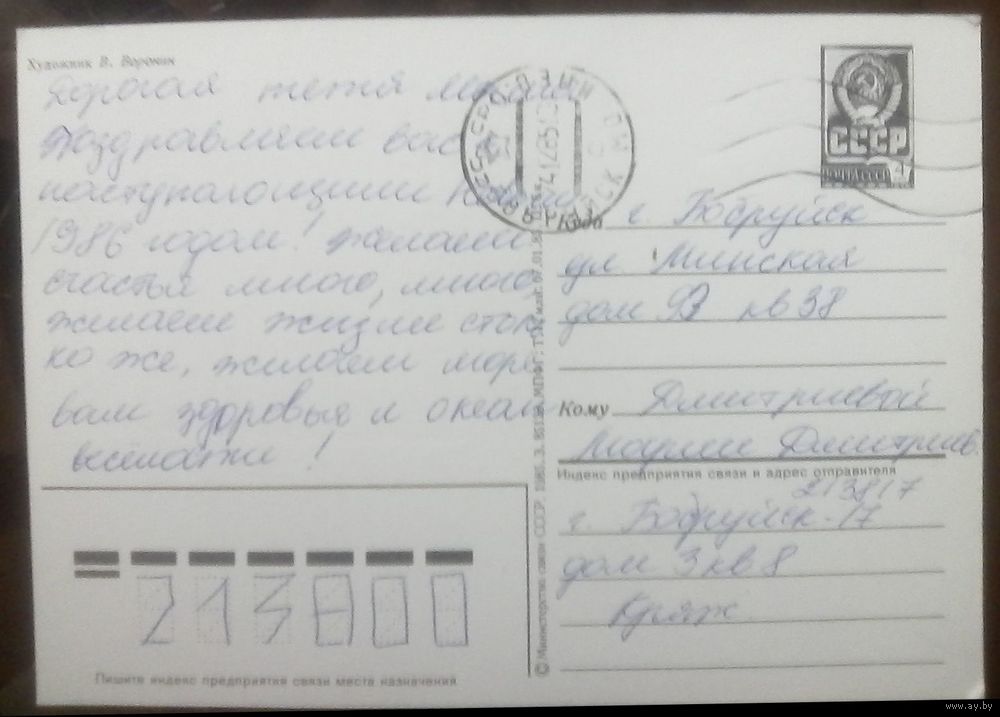 Художник В. Воронин
Дорогая тетя
Поздравляем вас
наступающим
1986 годом! Желаем
счастья много, много,
желаем жизни столь
ко же, желаем море
вам здоровья и океан
СССР
ПОЧТА СССР
4
Куда г. Бобруйск
ул Минская
дом кв 38
Кому Дмитриевой
Марии Дмитриев.
Индекс предприятия связи и адрес отправителя
213817
г. Бобруйск-17
дом 3 кв 8
Кряж
213800
Пишите индекс предприятия связи места назначения
© Министерство связи СССР. 1985. МПФГ.
www.ay.by